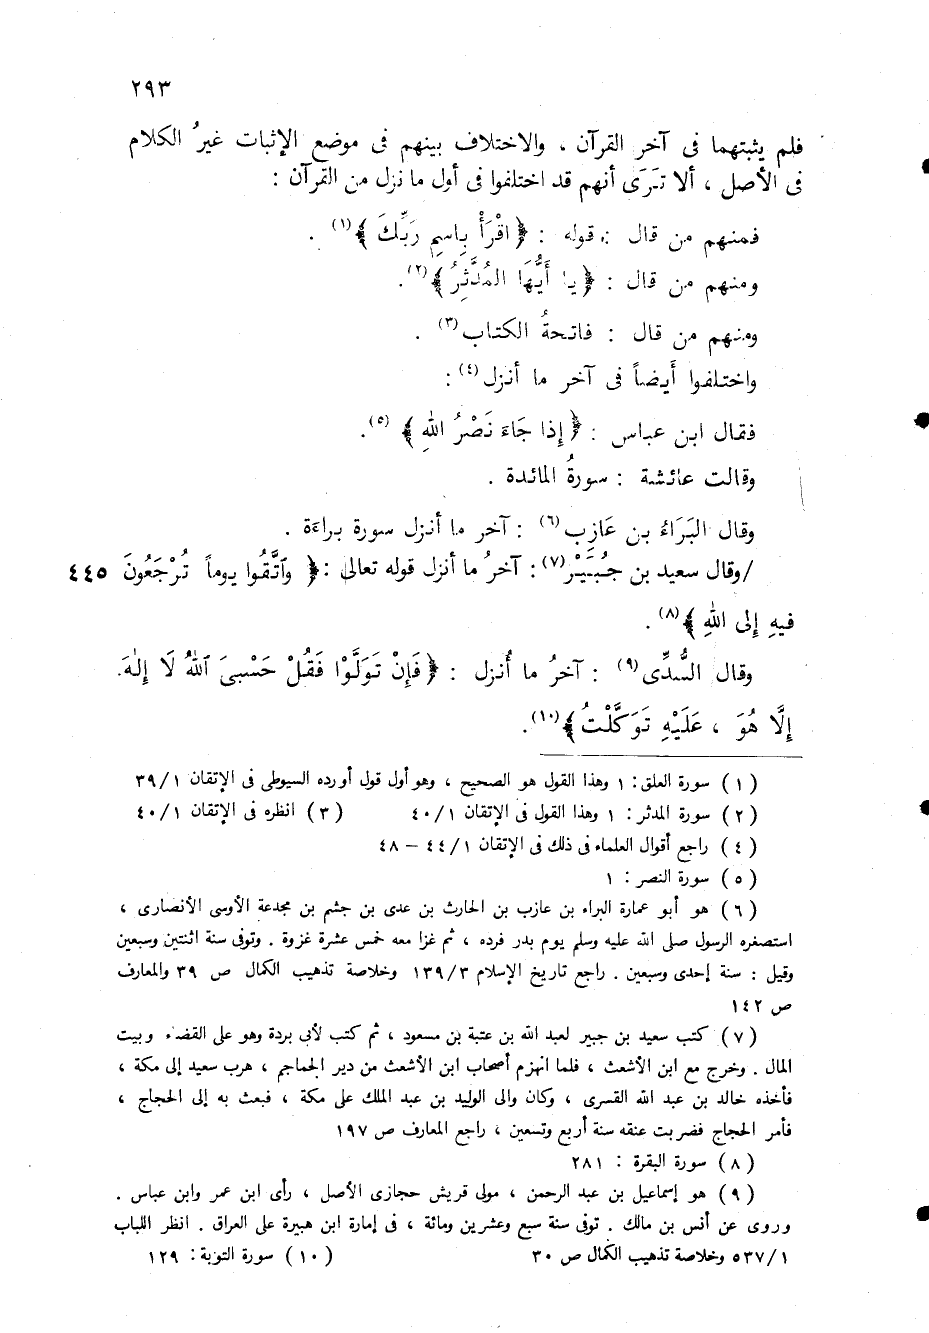 ٢٩٣
فلم يثبتهما فى آخر القرآن ، والاختلاف بينهم فى موضع الإثبات غيرُ الكلام
فى الأصل ، ألا تَرَى أنهم قد اختلفوا فى أول ما نزل من القرآن :
فمنهم من قال : قوله : ﴿ اقْرَأْ بِاسِمِ رَبِّكَ ﴾(١) .
ومنهم من قال : ﴿ يا أَيُّهَا المُدَّثِرُ ﴾(٢).
ومنهم من قال : فاتحةُ الكتاب(٣) .
واختلفوا أيضاً فى آخر ما أنزل(٤) :
فقال ابن عباس : ﴿ إِذا جَاءَ نَصْرُ اللهِ ﴾ (٥).
وقالت عائشة : سورةُ المائدة .
وقال البَرَاءُ بن عَازِب(٦) : آخر ما أنزل سورة براءة .
/وقال سعيد بن جُبَيْر(٧): آخرُ ما أنزل قوله تعالى : ﴿ وَٱتَّقُوا يوماً تُرْجَعُونَ ٤٤٥
فيهِ إِلى اللهِ ﴾(٨).
وقال السُّدِّى(٩) : آخرُ ما أُنزل : ﴿ فَإِنْ تَوَلَّوْا فَقُلْ حَسْبىَ ٱللهُ لَا إِلهَ
إِلَّا هُوَ ، عَلَيْهِ تَوَكَّلْتُ ﴾(١٠).
(١) سورة العلق: ١ وهذا القول هو الصحيح ، وهو أول قول أورده السيوطى فى الإتقان ٣٩/١
(٢) سورة المدثر: ١ وهذا القول فى الإتقان ٤٠/١ (٣) انظره فى الإتقان ٤٠/١
(٤) راجع أقوال العلماء فى ذلك فى الإتقان ٤٤/١ – ٤٨
(٥) سورة النصر : ١
(٦) هو أبو عمارة البراء بن عازب بن الحارث بن عدى بن جشم بن مجدعة الأوسى الأنصارى ،
استصغره الرسول صلى الله عليه وسلم يوم بدر فرده ، ثم غزا معه خمس عشرة غزوة . وتوفى سنة اثنتين وسبعين
وقيل : سنة إحدى وسبعين . راجع تاريخ الإسلام ١٣٩/٣ وخلاصة تذهيب الكمال ص ٣٩ والمعارف
ص ١٤٢
(٧) كتب سعيد بن جبير لعبد الله بن عتبة بن مسعود ، ثم كتب لأبى بردة وهو على القضاء وبيت
المال . وخرج مع ابن الأشعث ، فلما انهزم أصحاب ابن الأشعث من دير الجماجم ، هرب سعيد إلى مكة ،
فأخذه خالد بن عبد الله القسرى ، وكان والى الوليد بن عبد الملك على مكة ، فبعث به إلى الحجاج ،
فأمر الحجاج فضربت عنقه سنة أربع وتسعين ، راجع المعارف ص ١٩٧
(٨) سورة البقرة : ٢٨١
(٩) هو إسماعيل بن عبد الرحمن ، مولى قريش حجازى الأصل ، رأى ابن عمر وابن عباس .
وروى عن أنس بن مالك . توفى سنة سبع وعشرين ومائة ، فى إمارة ابن هبيرة على العراق . انظر اللباب
٥٣٧/١ وخلاصة تذهيب الكمال ص ٣٠ (١٠) سورة التوبة: ١٢٩